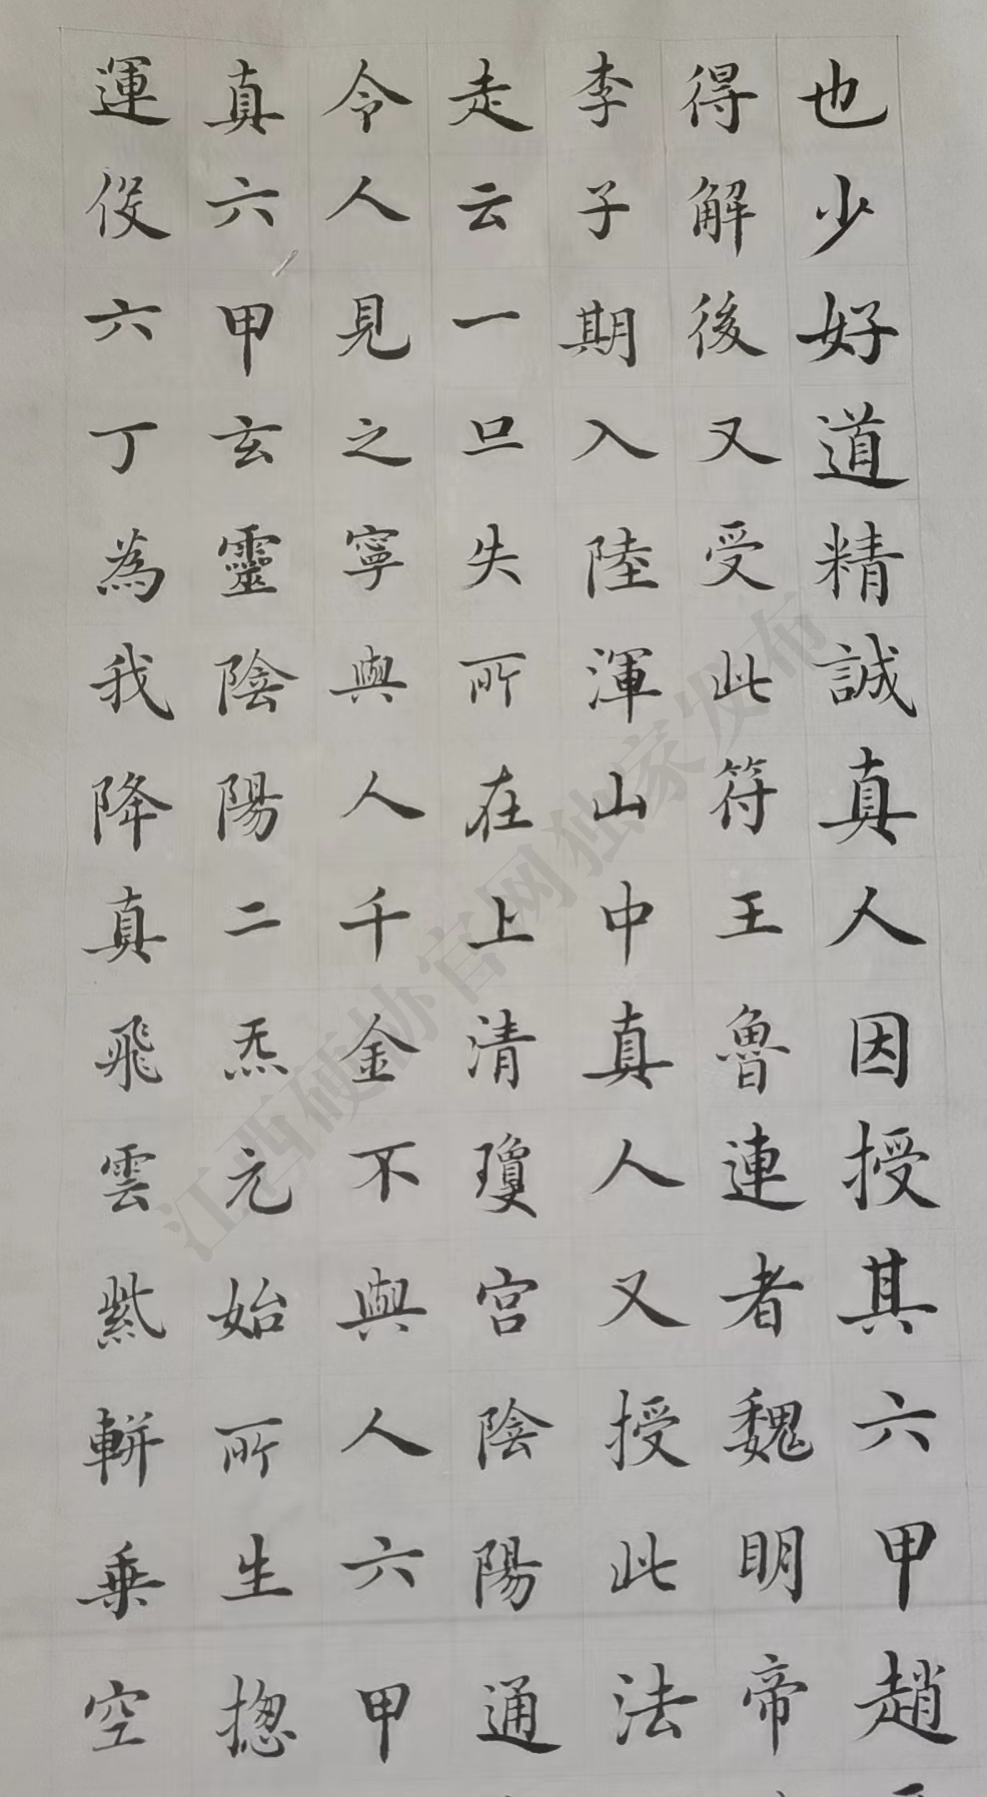 也少好道精誠真人因授其六甲趙
得解後又受此符王魯連者魏明帝
李子期入陸渾山中真人又授此法
走云一旦失所在上清瓊宮陰陽通
令人見之寧與人千金不與人六甲
真六甲玄靈陰陽二炁元始所生揔
運役六丁為我降真飛雲紫軿乗空
江西硬协官网独家发布